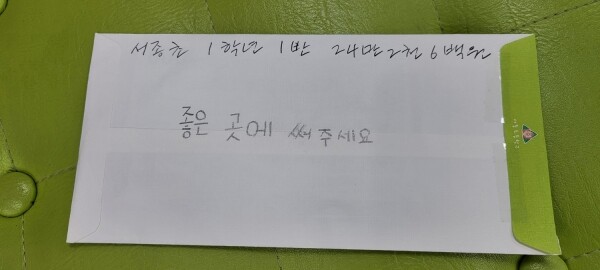 서종초 1학년 1반 24만2천6백원
좋은 곳에 써주세요